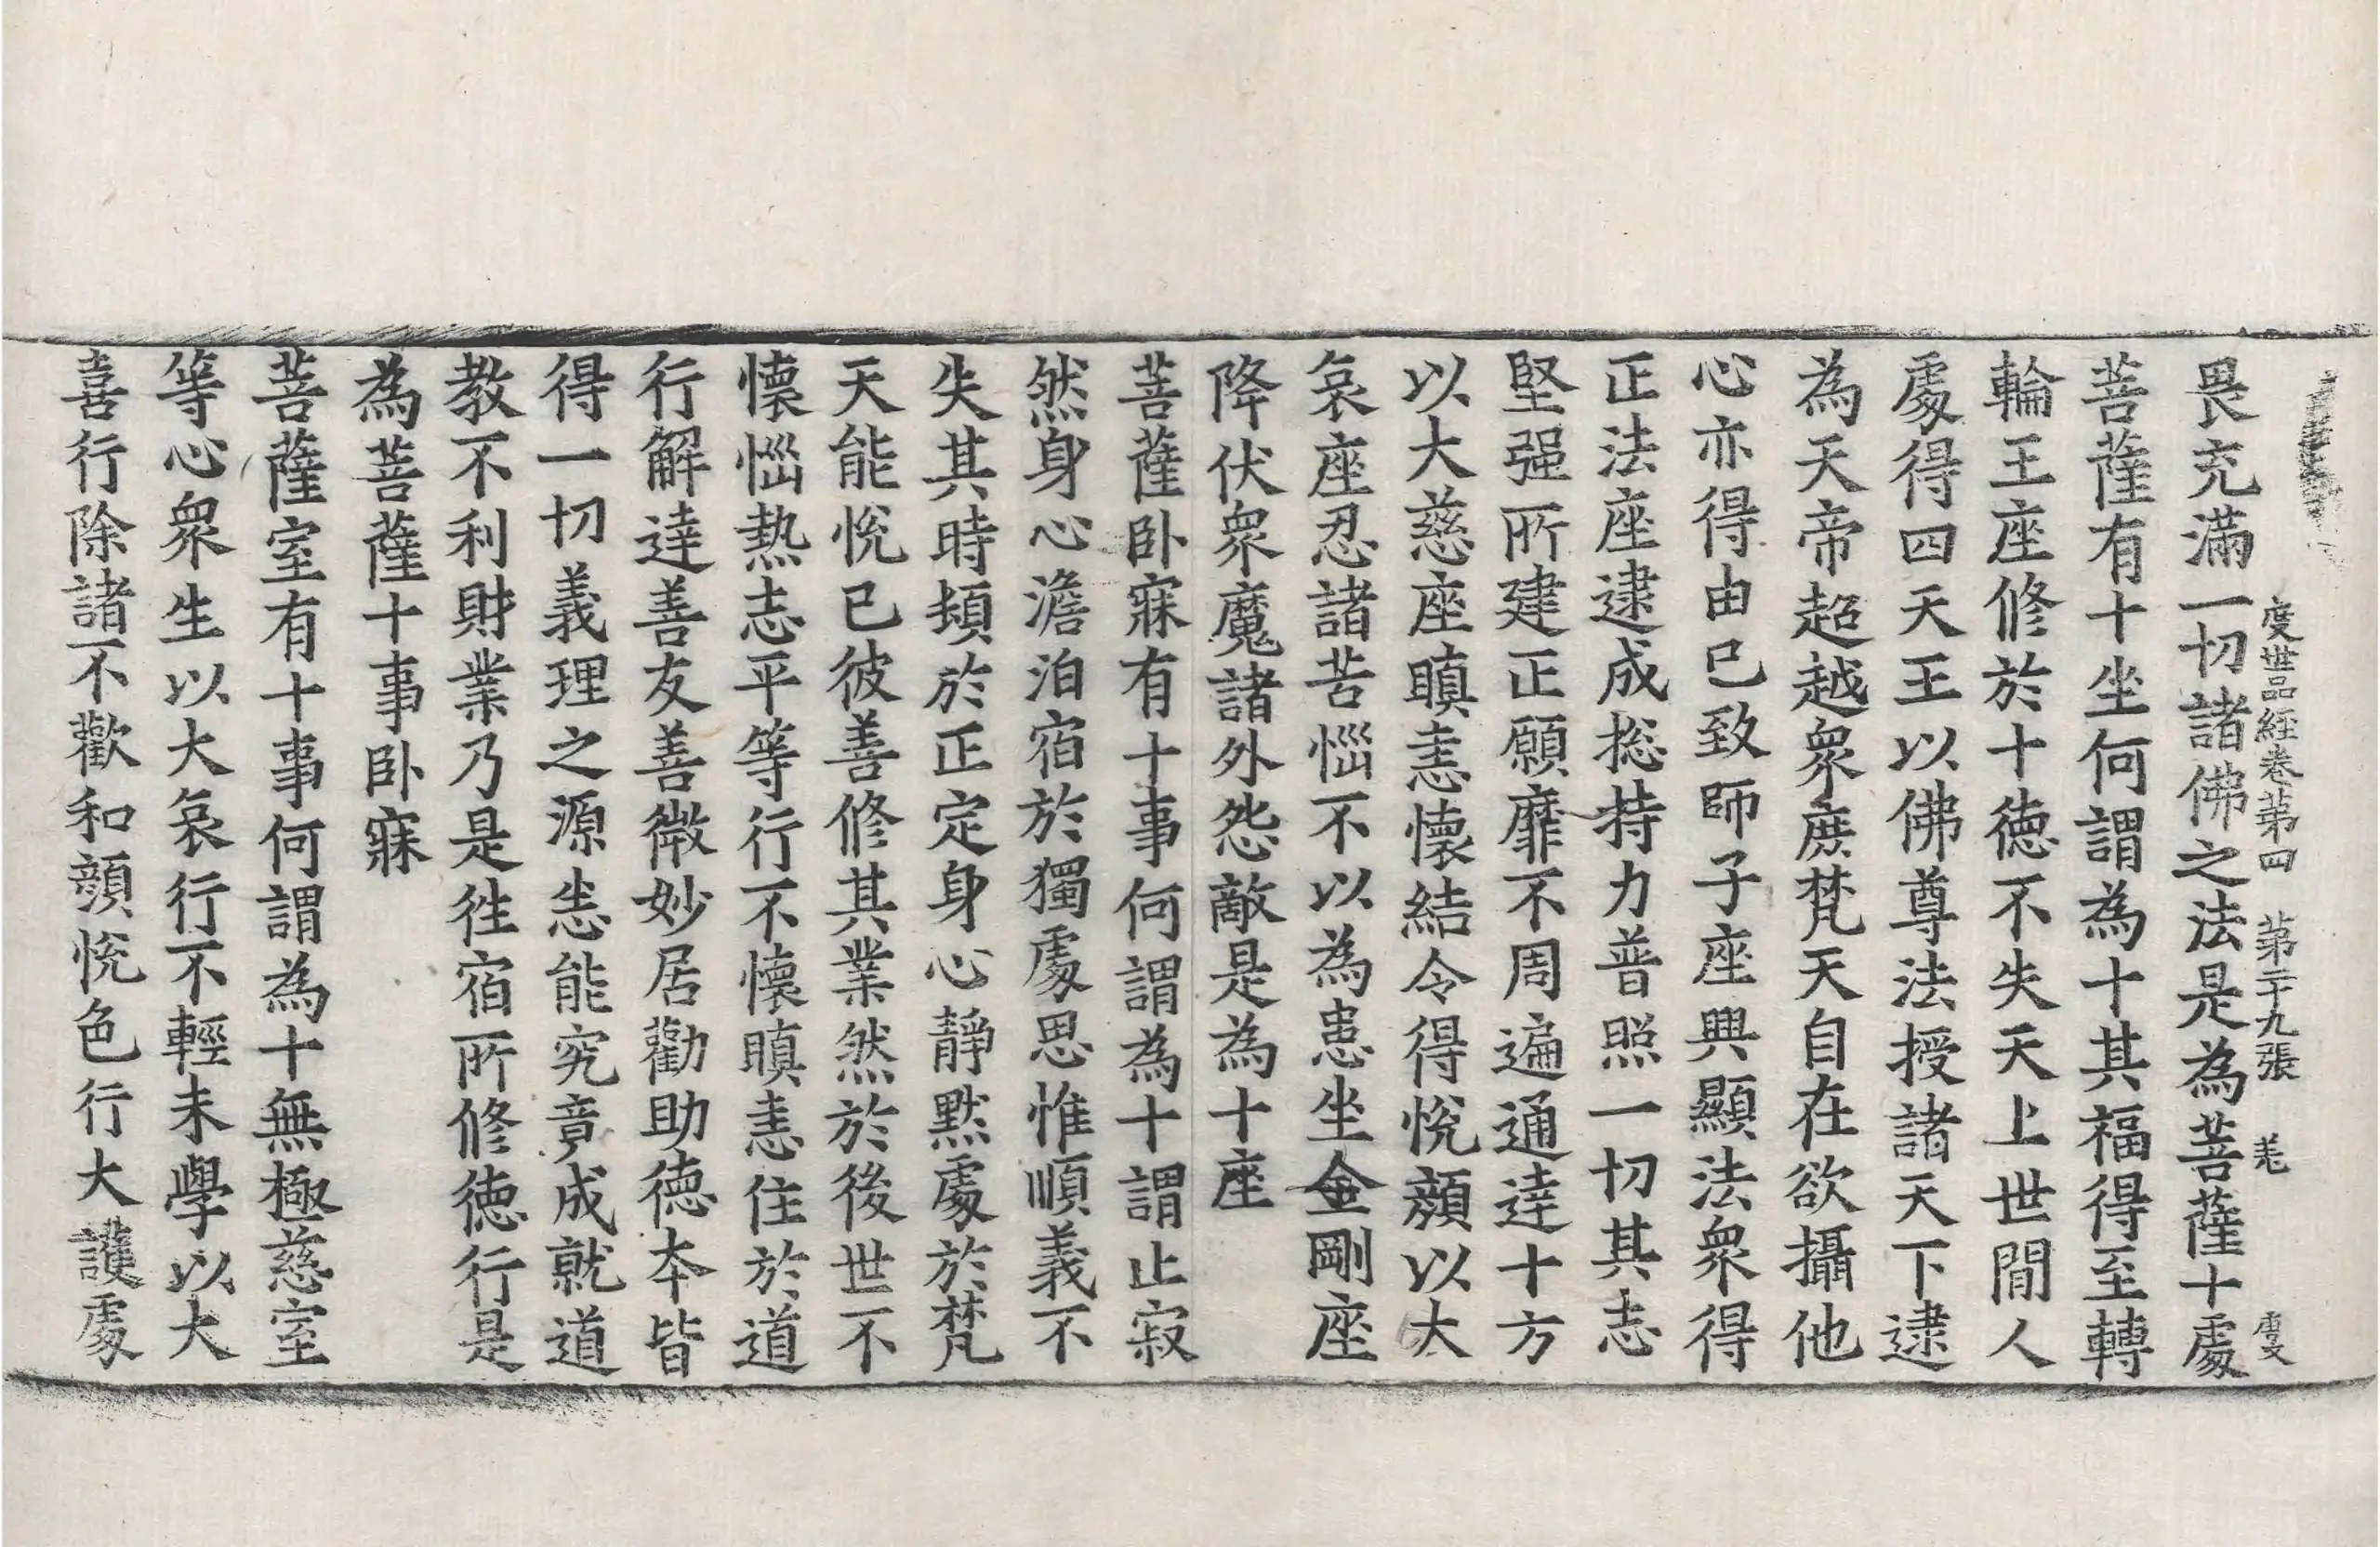 度世品經卷第四　第二十九張　羌
畏充滿一切諸佛之法是為菩薩十處
菩薩有十坐何謂為十其福得至轉
輪王座修於十德不失天上世間人
處得四天王以佛尊法授諸天下逮
為天帝超越衆庶梵天自在欲攝他
心亦得由已致師子座興顯法衆得
正法座逮成捴持力普照一切其志
堅强所建正願靡不周遍通達十方
以大慈座瞋恚懷結令得悅顏以大
哀座忍諸苦惱不以為患坐金剛座
降伏衆魔諸外怨敵是為十座
菩薩卧寐有十事何謂為十謂止寂
然身心澹泊宿於獨處思惟順義不
失其時頻於正定身心靜黙處於梵
天能悅已彼善修其業然於後世不
懷惱熱志平等行不懷瞋恚住於道
行解達善友善微妙居勸助德本皆
得一切義理之源恚能究竟成就道
教不利財業乃是徃宿所修德行是
為菩薩十事卧寐
菩薩室有十事何謂為十無極慈室
等心衆生以大哀行不輕未學以大
喜行除諸不歡和顏悅色行大護處